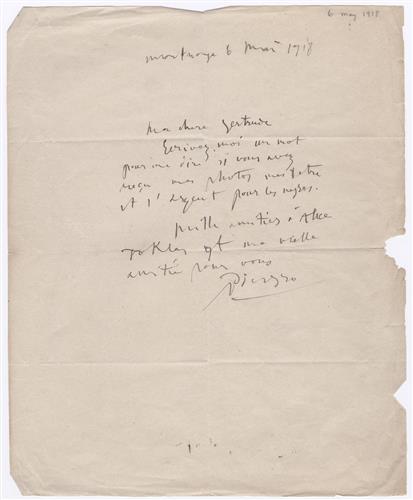 6 may 1918
montrouge 6 Mai 1918
Ma chere Gertrude
Ecrivez-moi un mot
pour me dire si vous avez
reçu mes photos ma lettre
et l'argent pour les
mille amities à Alice
Toklas et ma vielle
amitié pour vous
Picasso